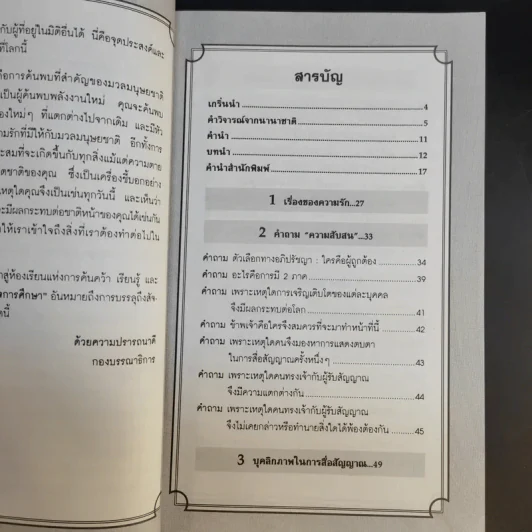 กับผู้ที่อยู่ในมิติอื่นได้ นี่คือจุดประสงค์และ
ที่โลกนี้
คือการค้นพบที่สำคัญของมวลมนุษยชาติ
เป็นผู้ค้นพบพลังงานใหม่ คุณจะค้นพบ
องใหม่ๆ ที่แตกต่างไปจากเดิม และมีหัว
ามรักที่มีให้กับมวลมนุษยชาติ อีกทั้งการ
ะสมที่จะเกิดขึ้นกับทุกสิ่งแม้แต่ความตาย
ดชาติของคุณ ซึ่งเป็นเครื่องชี้บอกอย่าง
หตุใดคุณจึงเป็นเช่นทุกวันนี้ และเห็นว่า
ะมีผลกระทบต่อชาติหน้าของคุณได้เช่นกัน
ให้เราเข้าใจถึงสิ่งที่เราต้องทำต่อไปใน
าสู่ห้องเรียนแห่งการค้นคว้า เรียนรู้ และ
งการศึกษา" อันหมายถึงการบรรลุถึงสัจ-
ดนี้
ด้วยความปรารถนาดี
กองบรรณาธิการ
สารบัญ
เกริ่นนำ ........ 4
คำวิจารณ์จากนานาชาติ ........ 5
คำนำ ........ 11
บทนำ ........ 12
คำนำสำนักพิมพ์ ........ 17
1 เรื่องของความรัก...27
2 คำถาม "ความสับสน"...33
คำถาม ตัวเลือกทางอภิปรัชญา : ใครคือผู้ถูกต้อง ........ 34
คำถาม อะไรคือการมี 2 ภาค ........ 39
คำถาม เพราะเหตุใดการเจริญเติบโตของแต่ละบุคคล
จึงมีผลกระทบต่อโลก ........ 41
คำถาม ข้าพเจ้าคือใครจึงสมควรที่จะมาทำหน้าที่นี้ ........ 42
คำถาม เพราะเหตุใดคนจึงมองหาการแสดงตบตา
ในการสื่อสัญญาณครั้งหนึ่งๆ ........ 43
คำถาม เพราะเหตุใดคนทรงเจ้ากับผู้รับสัญญาณ
จึงมีความแตกต่างกัน ........ 44
คำถาม เพราะเหตุใดคนทรงเจ้ากับผู้รับสัญญาณ
จึงไม่เคยกล่าวหรือทำนายสิ่งใดได้พ้องต้องกัน ........ 45
3 บุคลิกภาพในการสื่อสัญญาณ...49